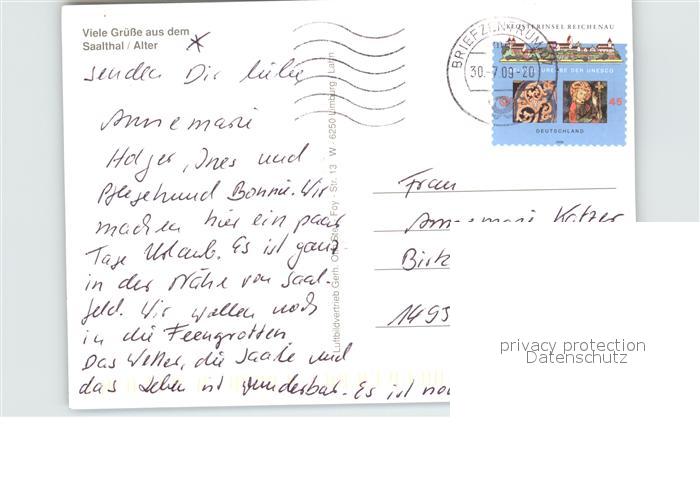 Viele Grüße aus dem
Saalthal / Alter
senden Dir liebe
Annemarie
Holger, Ines und
Pflegehund Bonnie. Wir
machen hier ein paar
Tage Urlaub. Es ist ganz
in der Nähe von Saal-
feld. Wir wollen noch
in die Feengrotten
Das Wetter, die Saale und
das Leben ist wunderbar. Es ist no
Luftbildvertrieb Gerh. Ste. Foy - Str. 13 W - 6250 Limburg / Lahn
BRIEFZENTRUM
30.-7.09-20
KLOSTERINSEL REICHENAU
ERBE DER UNESCO
45
DEUTSCHLAND
Frau
Annemarie Katzer
Birk
1493
privacy protection
Datenschutz